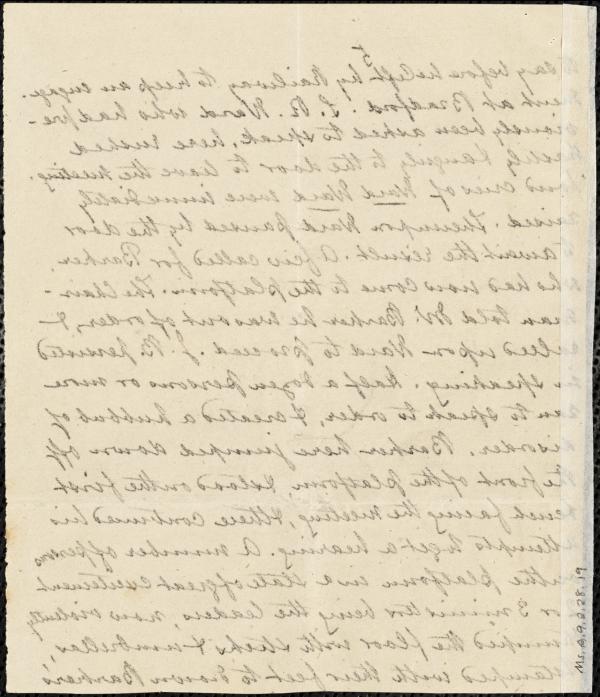 5
day before he left by Railway to keep an engage-
ment at Bradford. S. R. Ward who had pre-
viously been asked to speak, here rushed
& angrily to the door to leave the meeting.
loud cries of Ward Ward were immediately
raised. Thereupon Ward paused by the door
to await the result. A few called for Barker
who had now come to the platform. The Chair-
man told Mr. Barker he was out of order, &
called upon Ward to proceed. J. B. persisted
in speaking. Half a dozen persons or more
began to speak to order, & created a hubbub of
disorder. Barker here jumped down off
the front of the platform, & stood on the first
bench facing the meeting, & there continued his
attempts to get a hearing. A number of persons
on the platform in a state of great excitement
2 or 3 ministers being the leaders, now violently
thumped the floor with sticks & umbrellas,
stamped with their feet to drown Barker's
Ms.A.9.2.28.19